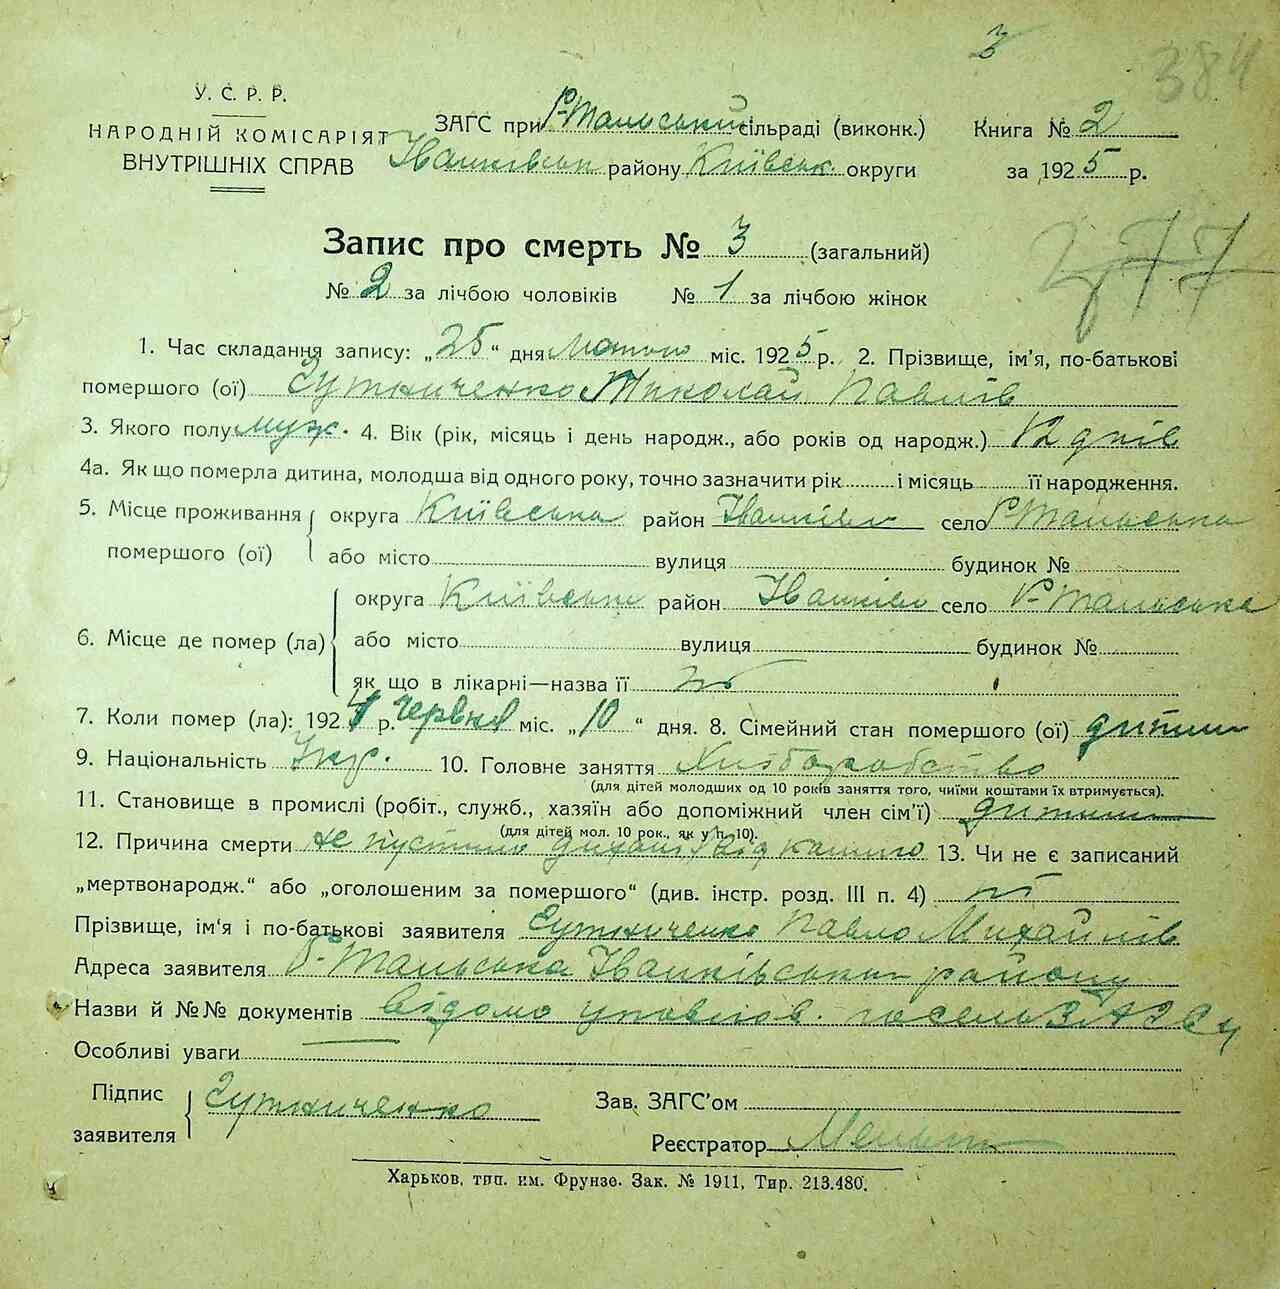 3
384
У. С. Р. Р.
НАРОДНІЙ КОМІСАРІЯТ
ВНУТРІШНІХ СПРАВ
ЗАГС при Р-Тальський сільраді (виконк.)
Іванківськ району Київськ округи
Книга № 2
за 1925 р.
277
Запис про смерть № 3 (загальний)
№ 2 за лічбою чоловіків № 1 за лічбою жінок
1. Час складання запису: „25“ дня лютого міс. 1925 р. 2. Прізвище, ім’я, по-батькові
помершого (ої) Миколай Павлів
3. Якого полу муж. 4. Вік (рік, місяць і день народж., або років од народж.) 12 днів
4а. Як що померла дитина, молодша від одного року, точно зазначити рік і місяць її народження.
5. Місце проживання помершого (ої) округа Київська район Іванків село Р-Тальська
або місто вулиця будинок №
6. Місце де помер (ла) округа Київська район Іванків село Р-Тальська
або місто вулиця будинок №
як що в лікарні—назва її ні
7. Коли помер (ла): 1924 р. червня міс. „10“ дня. 8. Сімейний стан помершого (ої) дитина
9. Національність Укр. 10. Головне заняття Хліборобство
(для дітей молодших од 10 років заняття того, чиїми коштами їх втримується).
11. Становище в промислі (робіт., служб., хазяїн або допоміжний член сім’ї) дитина
(для дітей мол. 10 рок., як у п. 10).
12. Причина смерти від кашлю 13. Чи не є записаний
„мертвонародж.“ або „оголошеним за помершого“ (див. інстр. розд. III п. 4) ні
Прізвище, ім‘я і по-батькові заявителя Павло Михайлів
Адреса заявителя Р-Тальська Іванківського району
Назви й №№ документів відомо уповнов.
Особливі уваги
Підпис заявителя
Зав. ЗАГС’ом
Реєстратор
Харьков, тип. им. Фрунзе. Зак. № 1911, Тир. 213.480.